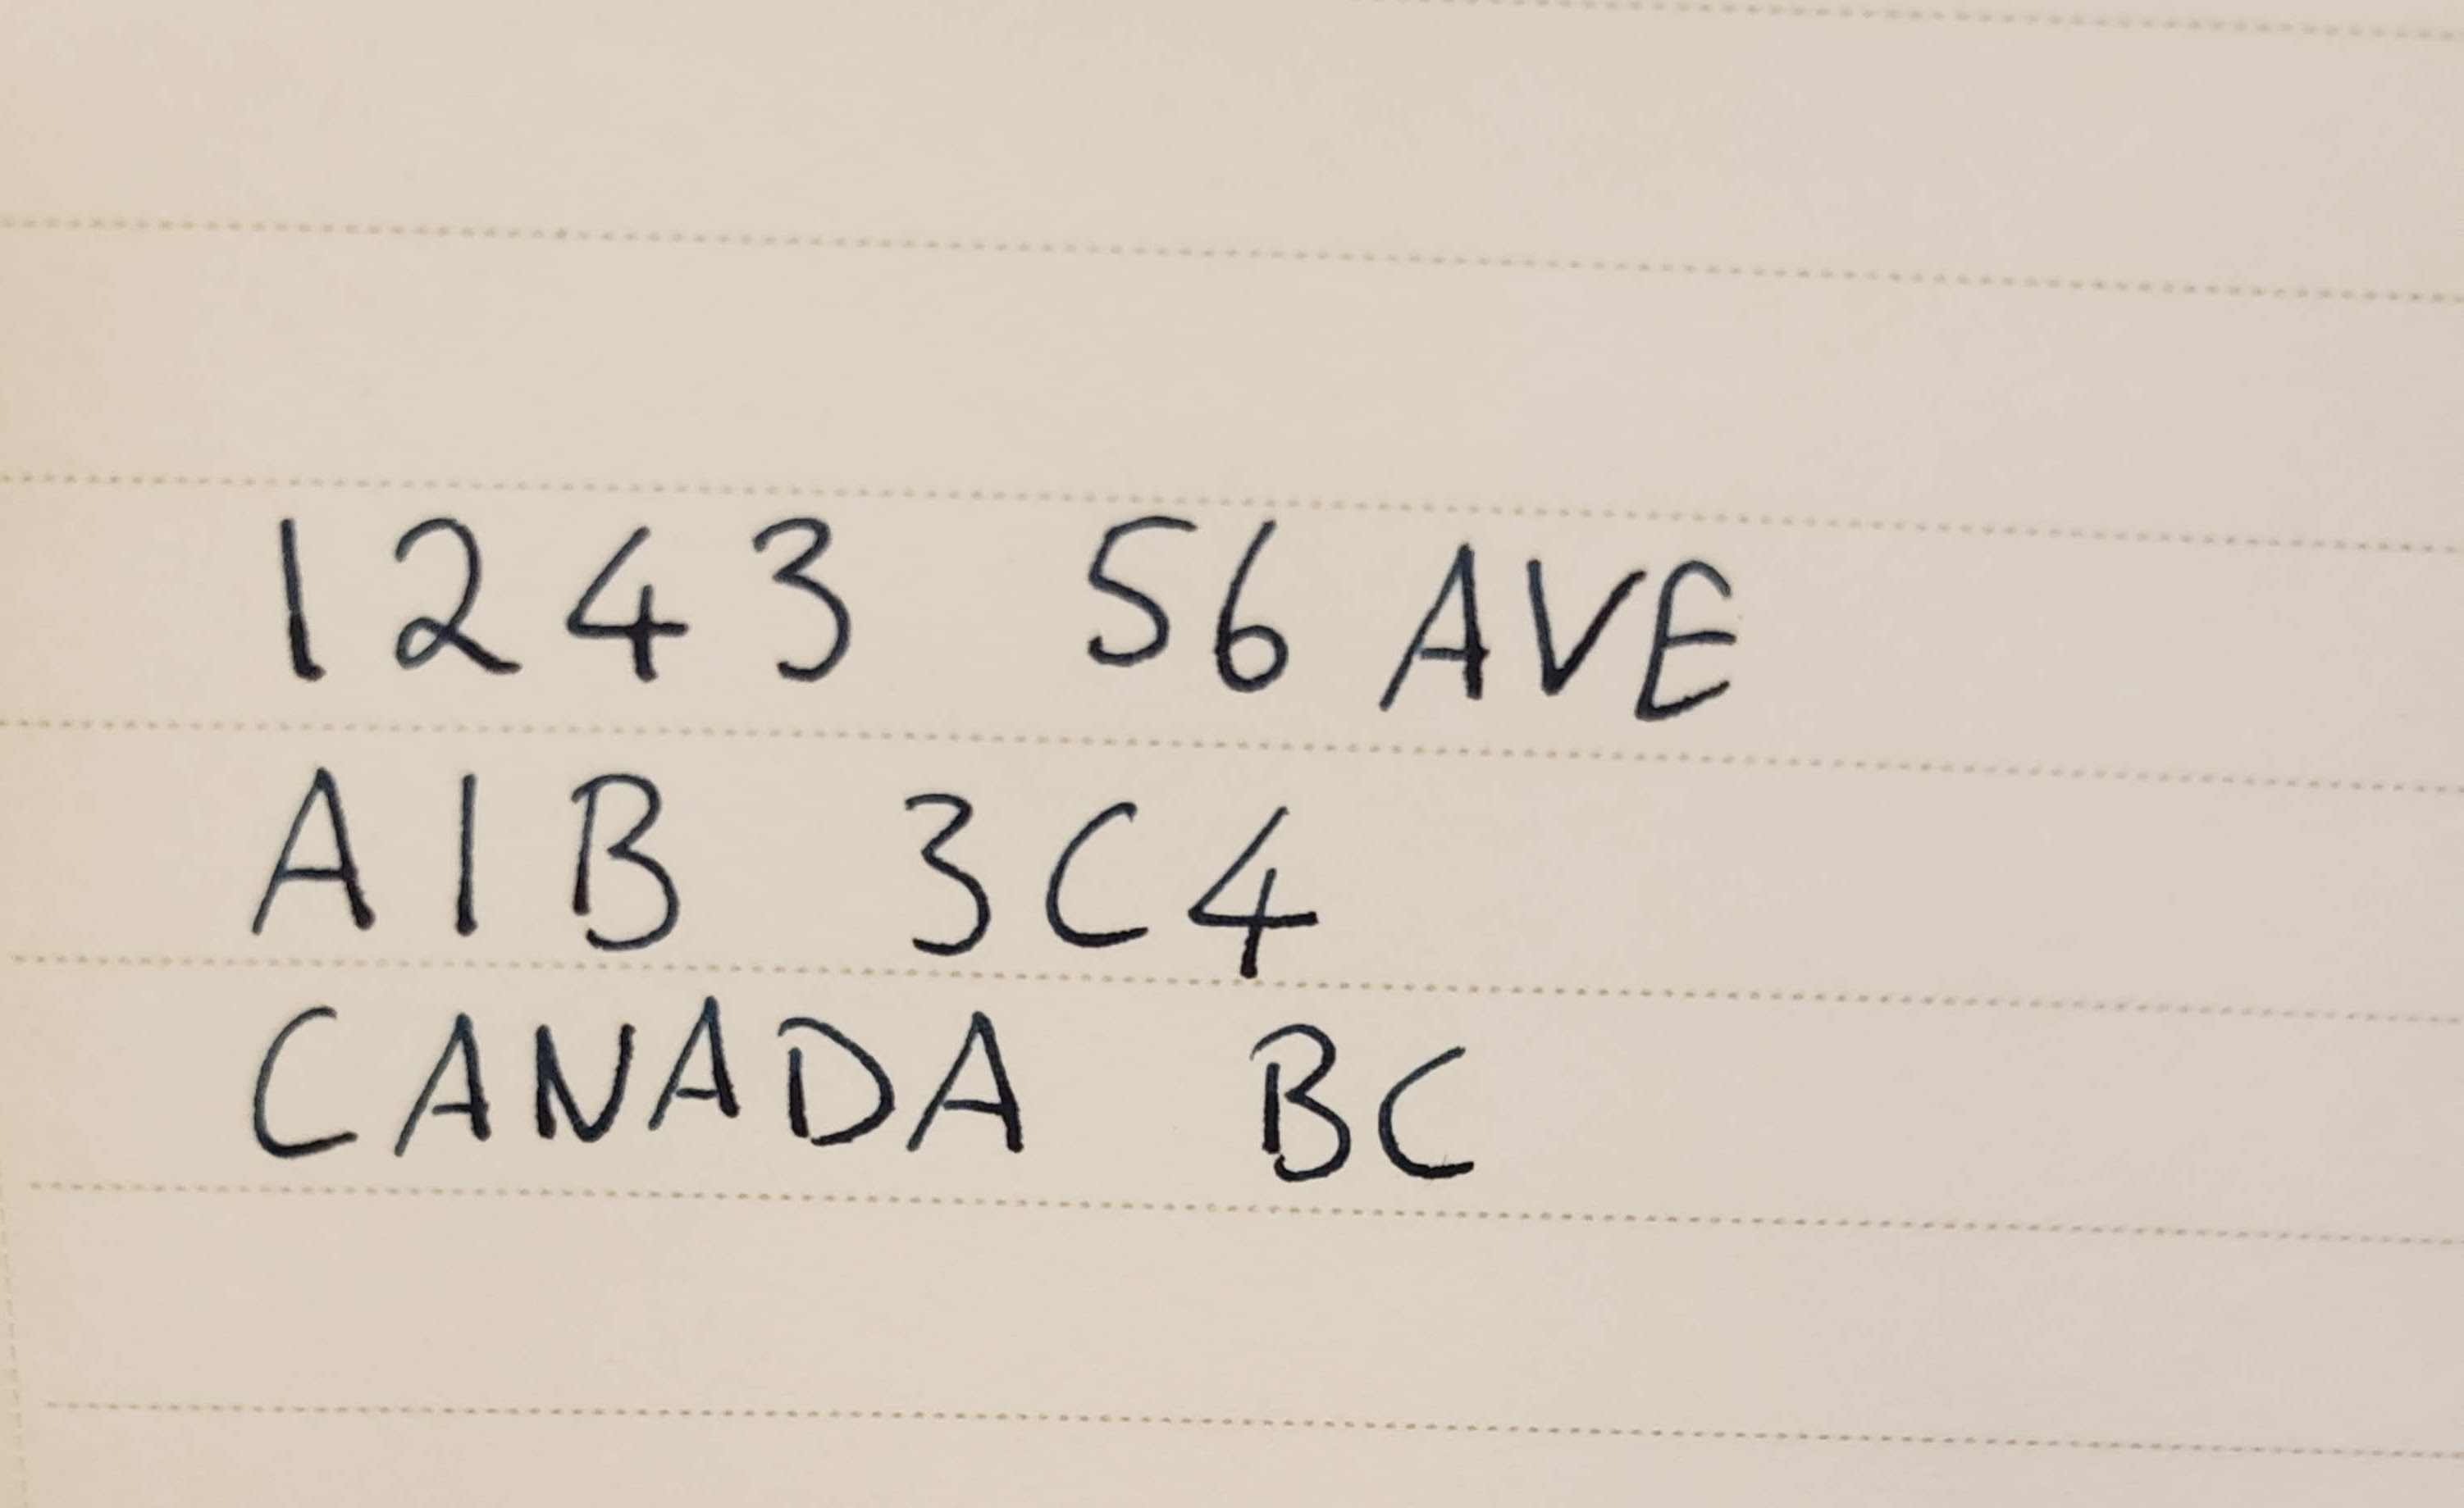 1243 56 AVE
A1B 3C4
CANADA BC